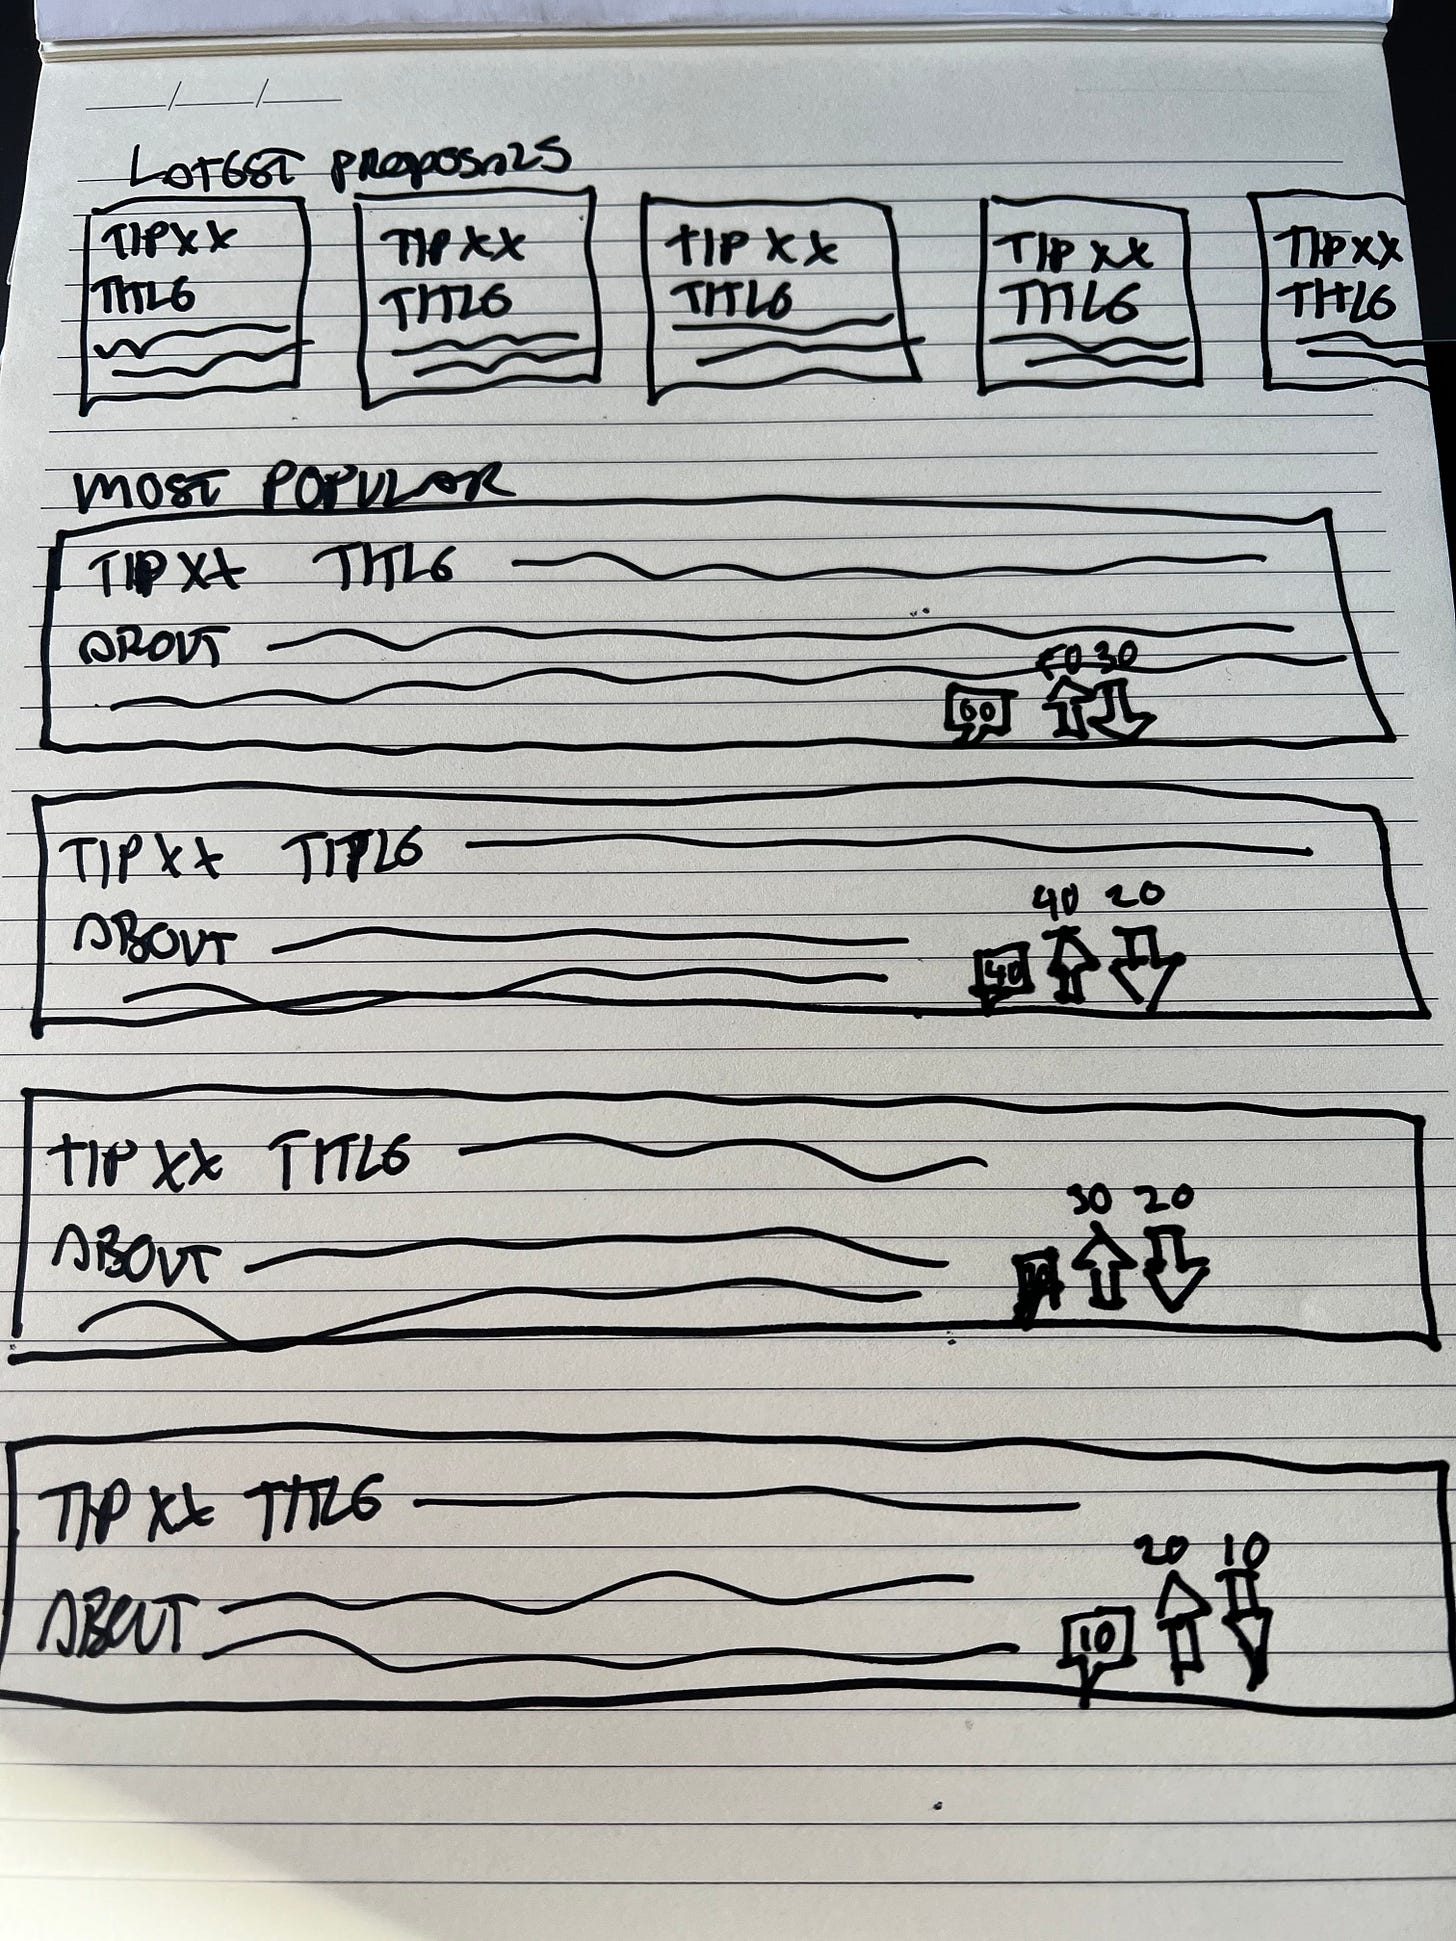 LATEST PROPOSALS
TIP XX TIP XX TIP XX TIP XX TIP XX
TITLE TITLE TITLE TITLE TITLE
MOST POPULAR
TIP XX TITLE
ABOUT
30
60
TIP XX TITLE
40 20
ABOUT
40
TIP XX TITLE
30 20
ABOUT
TIP XX TITLE
20 10
ABOUT
10